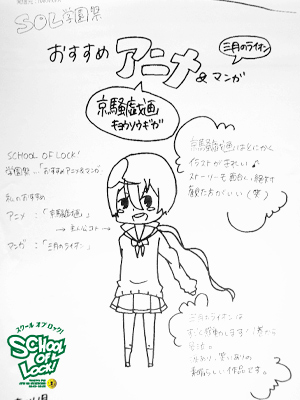 SOL学園祭
おすすめ アニメ & マンガ
三月のライオン
京騒戯画
キョウソウギガ
京騒戯画はとにかく
イラストがきれい♪
ストーリーも面白く
観た方がいい(笑)
SCHOOL OF LOCK!
学園祭...「おすすめアニメ&マンガ」
おすすめ
アニメ:「京騒戯画」
マンガ:「三月のライオン」
三月のライオンは
すごく感動します!
笑いありの
素晴らしい作品です。
スクール オブ ロック!
SCHOOL
OF
LOCK!